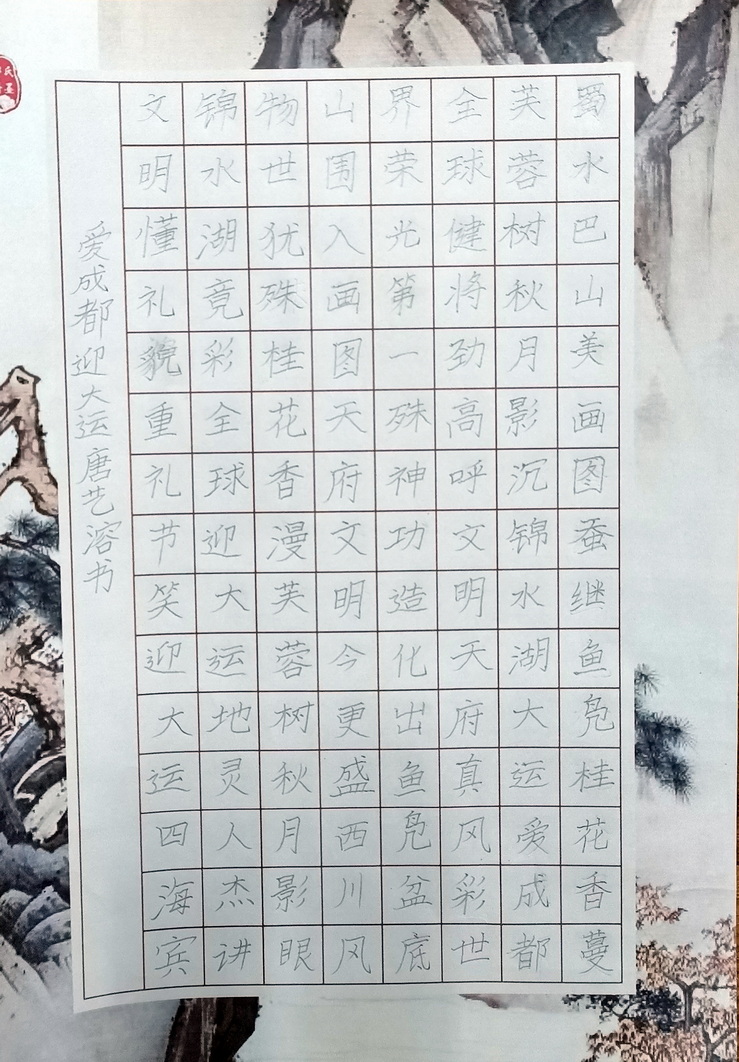 蜀水巴山美画图蚕继鱼凫桂花香蔓
芙蓉树秋月影沉锦水湖大运爱成都
全球健将劲高呼文明天府真风彩世
界荣光第一殊神功造化出鱼凫盆底
山围入画图天府文明今更盛西川风
物世犹殊桂花香漫芙蓉树秋月影眼
锦水湖竟彩全球迎大运地灵人杰讲
文明懂礼貌重礼节笑迎大运四海宾
爱成都迎大运唐艺溶书